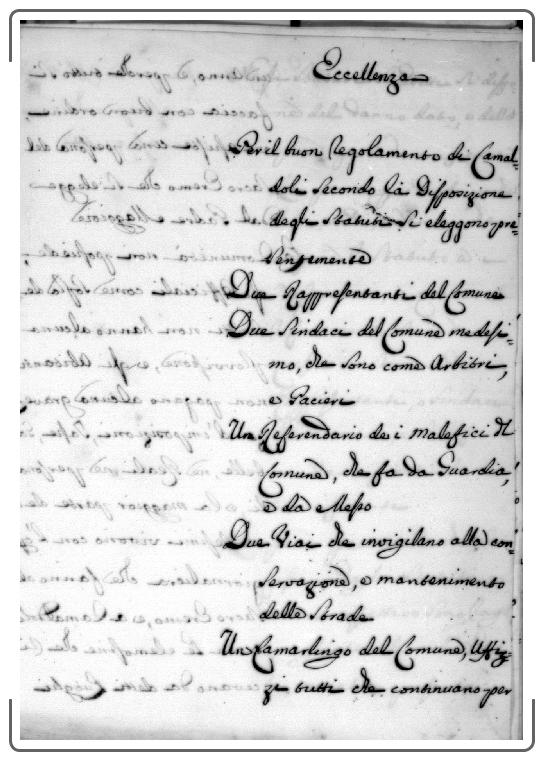 Eccellenza
Per il buon Regolamento di Camal-
doli secondo la Disposizione
degli Statuti si eleggono pre-
sentemente
Due Rappresentanti del Comune
Due Sindaci del Comune medesi-
mo, che sono come Arbitri,
e Pacieri
Un Referendario dei malefici del
Comune, che fa da Guardia,
e da Messo
Due Viai che invigilano alla con-
servazione, e mantenimento
delle Strade
Un Camarlingo del Comune, Uffiz-
zi tutti che continuano per